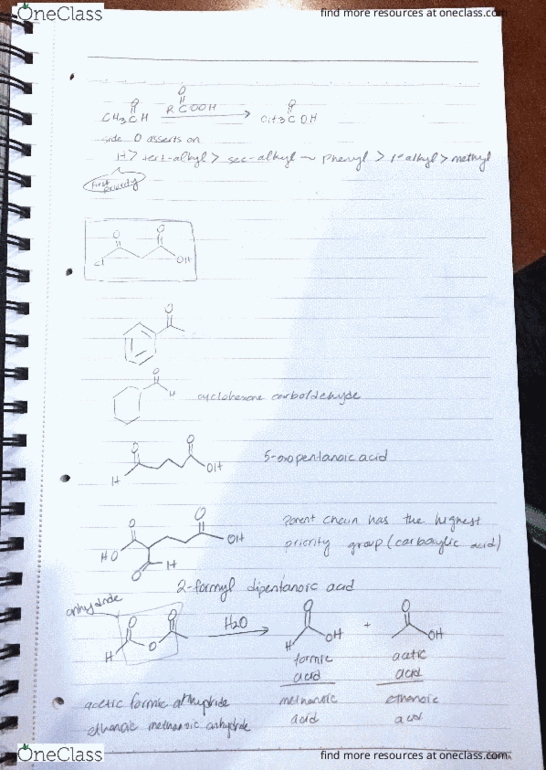 OneClass
find more resources at oneclass.com
O O O
CH3CH RCOOH → CH3COH
side O asserts on
H > tert-alkyl > sec-alkyl ~ phenyl > 1°alkyl > methyl
first priority
O O
Cl OH
O
O
H cyclohexane carbaldehyde
O O
H OH 5-oxopentanoic acid
O O
HO OH
O H
Parent chain has the highest
priority group (carboxylic acid)
2-formyl dipentanoic acid
anhydride
O O H2O → O + O
H O H OH OH
formic acetic
acid acid
methanoic ethanoic
acid acid
acetic formic anhydride
ethanoic methanoic anhydride
OneClass
find more resources at oneclass.com